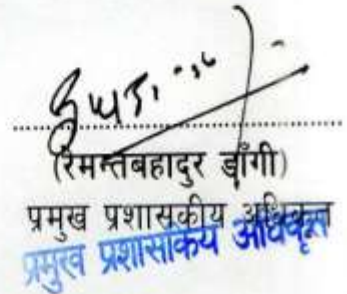 (रेमन्तबहादुर डाँगी)
प्रमुख प्रशासकीय अधिकृत
प्रमुख प्रशासकिय अधिकृत